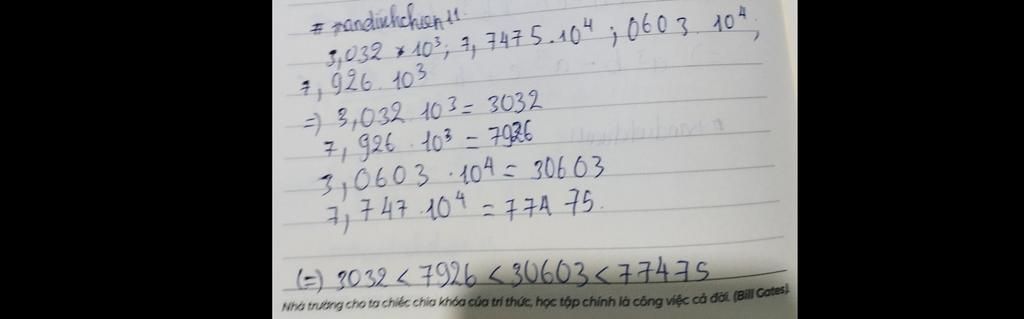 # nandinhchien11.
3,032 * 10³; 7,7475.10⁴; 0603.10⁴;
7,926.10³
=) 3,032.10³ = 3032
7,926.10³ = 7926
3,0603.10⁴ = 30603
7,747.10⁴ = 77475.
(=) 3032 < 7926 < 30603 < 77475
Nhà trường cho ta chiếc chìa khóa của tri thức, học tập chính là công việc cả đời. (Bill Gates)